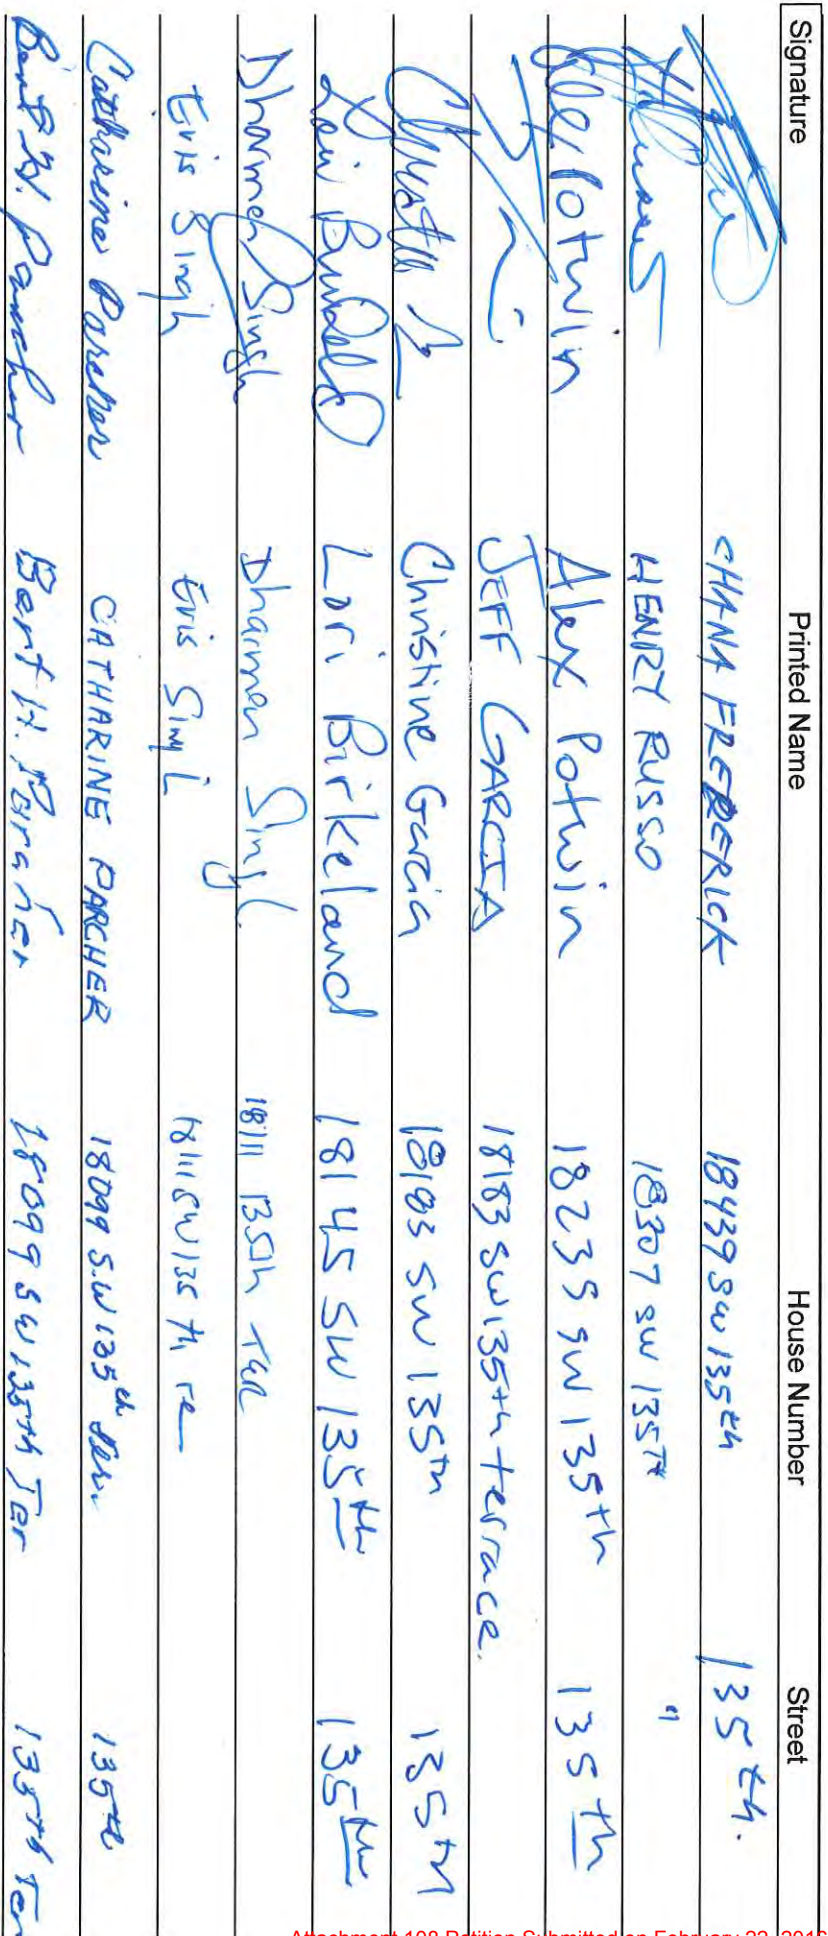 Signature Printed Name House Number Street
CHANA FREDERICK 18439 SW 135th 135th.
HENRY RUSSO 18307 SW 135TH "
Alex Potwin Alex Potwin 18235 SW 135th 135th
JEFF GARCIA 18183 SW 135th terrace.
Christine Garcia 18183 SW 135th 135th
Lori Birkeland 18145 SW 135th 135th
Dharmen Singh Dharmen Singh 18111 135th Ter
Eris Singh Eris Singh 18111 SW 135 th Te
Catharine Parcher CATHARINE PARCHER 18099 S.W 135th Ter. 135th
Bert H. Parcher Bert H. Parcher 18099 SW 135th Ter 135th Ter
Attachment 108 Petition Submitted on February 22, 2016